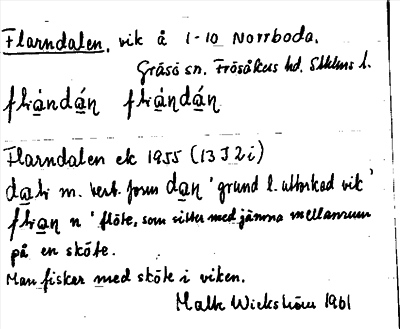 Flarndalen, vik å 1-10 Norrboda.
Gräsö sn. Frösåkers hd. Sthlms l.
fli̯ạndạ́n fli̯ạndạ́n
Flarndalen ek 1955 (13 J 2 i)
dạli m. best. form dạn 'grund l. uttorkad vik'
fli̯ạn n 'flöte, som sitter med jämna mellanrum
på en sköte.
Man fiskar med sköte i viken.
Mats Wickström 1961